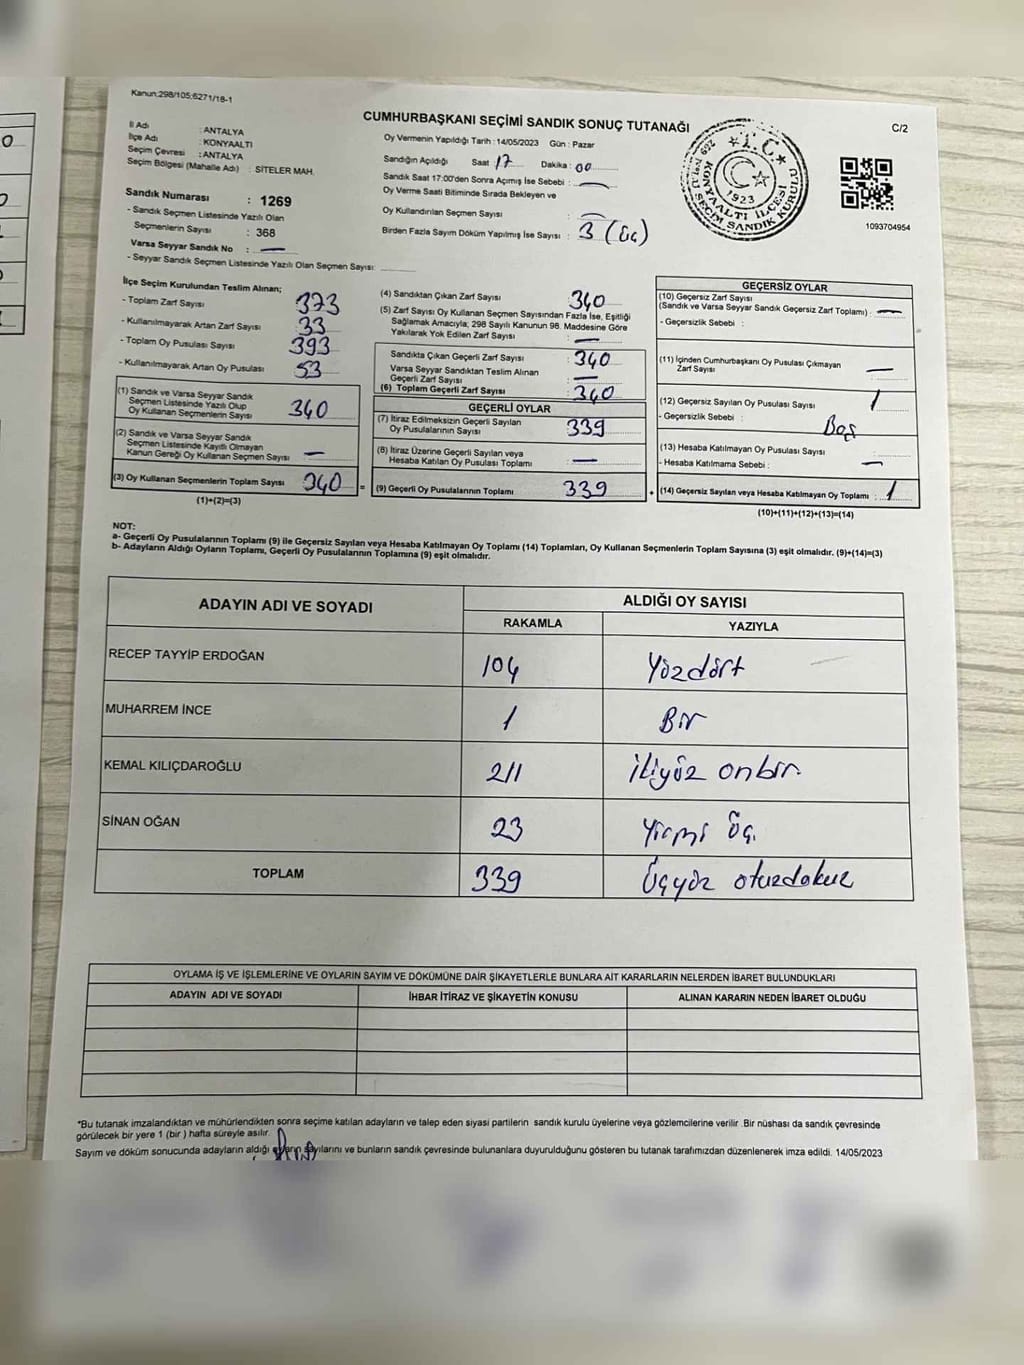 Kanun:298/105;6271/18-1
CUMHURBAŞKANI SEÇİMİ SANDIK SONUÇ TUTANAĞI
C/2
İl Adı : ANTALYA
İlçe Adı : KONYAALTI
Seçim Çevresi : ANTALYA
Seçim Bölgesi (Mahalle Adı) : SİTELER MAH.
Sandık Numarası : 1269
- Sandık Seçmen Listesinde Yazılı Olan
Seçmenlerin Sayısı : 368
Varsa Seyyar Sandık No : —
- Seyyar Sandık Seçmen Listesinde Yazılı Olan Seçmen Sayısı:
Oy Vermenin Yapıldığı Tarih : 14/05/2023 Gün : Pazar
Sandığın Açıldığı Saat : 17 Dakika : 00
Sandık Saat 17:00'den Sonra Açmış İse Sebebi : —
Oy Verme Saati Bitiminde Sırada Bekleyen ve
Oy Kullandırılan Seçmen Sayısı : —
Birden Fazla Sayım Döküm Yapılmış İse Sayısı : 3 (üç)
T.C.
1923
KONYAALTI İLÇESİ
SEÇİM SANDIK KURULU
1093704954
İlçe Seçim Kurulundan Teslim Alınan;
- Toplam Zarf Sayısı 373
- Kullanılmayarak Artan Zarf Sayısı 33
- Toplam Oy Pusulası Sayısı 393
- Kullanılmayarak Artan Oy Pusulası 53
(1) Sandık ve Varsa Seyyar Sandık
Seçmen Listesinde Yazılı Olup
Oy Kullanan Seçmenlerin Sayısı 340
(2) Sandık ve Varsa Seyyar Sandık
Seçmen Listesinde Kayıtlı Olmayan
Kanun Gereği Oy Kullanan Seçmen Sayısı —
(3) Oy Kullanan Seçmenlerin Toplam Sayısı 340
(1)+(2)=(3)
(4) Sandıktan Çıkan Zarf Sayısı 340
(5) Zarf Sayısı Oy Kullanan Seçmen Sayısından Fazla İse, Eşitliği
Sağlamak Amacıyla; 298 Sayılı Kanunun 98. Maddesine Göre
Yakılarak Yok Edilen Zarf Sayısı : —
Sandıkta Çıkan Geçerli Zarf Sayısı : 340
Varsa Seyyar Sandıktan Teslim Alınan
Geçerli Zarf Sayısı : —
(6) Toplam Geçerli Zarf Sayısı : 340
GEÇERLİ OYLAR
(7) İtiraz Edilmeksizin Geçerli Sayılan
Oy Pusulalarının Sayısı : 339
(8) İtiraz Üzerine Geçerli Sayılan veya
Hesaba Katılan Oy Pusulası Toplamı : —
= (9) Geçerli Oy Pusulalarının Toplamı : 339
GEÇERSİZ OYLAR
(10) Geçersiz Zarf Sayısı
(Sandık ve Varsa Seyyar Sandık Geçersiz Zarf Toplamı) : —
- Geçersizlik Sebebi :
(11) İçinden Cumhurbaşkanı Oy Pusulası Çıkmayan
Zarf Sayısı : —
(12) Geçersiz Sayılan Oy Pusulası Sayısı : 1
- Geçersizlik Sebebi : Boş
(13) Hesaba Katılmayan Oy Pusulası Sayısı :
- Hesaba Katılmama Sebebi : —
+ (14) Geçersiz Sayılan veya Hesaba Katılmayan Oy Toplamı : 1
(10)+(11)+(12)+(13)=(14)
NOT:
a- Geçerli Oy Pusulasının Toplamı (9) ile Geçersiz Sayılan veya Hesaba Katılmayan Oy Toplamı (14) Toplamları, Oy Kullanan Seçmenlerin Toplam Sayısına (3) eşit olmalıdır. (9)+(14)=(3)
b- Adayların Aldığı Oyların Toplamı, Geçerli Oy Pusulalarının Toplamına (9) eşit olmalıdır.
ADAYIN ADI VE SOYADI ALDIĞI OY SAYISI
RAKAMLA YAZIYLA
RECEP TAYYİP ERDOĞAN 104 Yüzdört
MUHARREM İNCE 1 Bir
KEMAL KILIÇDAROĞLU 211 ikiyüz onbir
SİNAN OĞAN 23 Yirmi üç
TOPLAM 339 Üçyüz otuzdokuz
OYLAMA İŞ VE İŞLEMLERİNE VE OYLARIN SAYIM VE DÖKÜMÜNE DAİR ŞİKAYETLERLE BUNLARA AİT KARARLARIN NELERDEN İBARET BULUNDUKLARI
ADAYIN ADI VE SOYADI İHBAR İTİRAZ VE ŞİKAYETİN KONUSU ALINAN KARARIN NEDEN İBARET OLDUĞU
*Bu tutanak imzalandıktan ve mühürlendikten sonra seçime katılan adayların ve talep eden siyasi partilerin sandık kurulu üyelerine veya gözlemcilerine verilir .Bir nüshası da sandık çevresinde
görülecek bir yere 1 (bir ) hafta süreyle asılır.
Sayım ve döküm sonucunda adayların aldığı oyların sayılarını ve bunların sandık çevresinde bulunanlara duyurulduğunu gösteren bu tutanak tarafımızdan düzenlenerek imza edildi. 14/05/2023